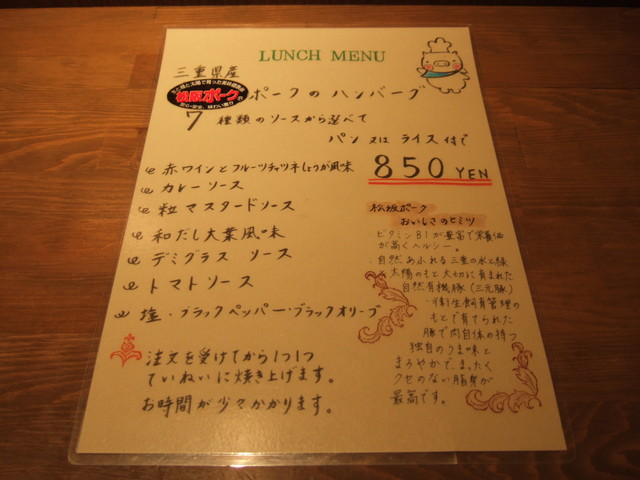 LUNCH MENU
三重県産
松阪ポーク
ポークのハンバーグ
7種類のソースから選べて
パン又はライス付で
850 YEN
赤ワインとフルーツチャツネしょうが風味
カレーソース
粒マスタードソース
和だし大葉風味
デミグラス ソース
トマトソース
塩・ブラックペッパー・ブラックオリーブ
注文を受けてから1つ1つ
ていねいに焼き上げます。
お時間が少々かかります。
松坂ポーク
おいしさのヒミツ
ビタミンB1が豊富で栄養価
が高くヘルシー。
・自然あふれる三重の水と緑
太陽のもと大切に育まれた
自然有機豚(三元豚)
・衛生飼育管理の
もとで育てられた
豚で肉自体の持つ
独自のうま味と
まろやかで、まったく
クセのない脂身が
最高です。